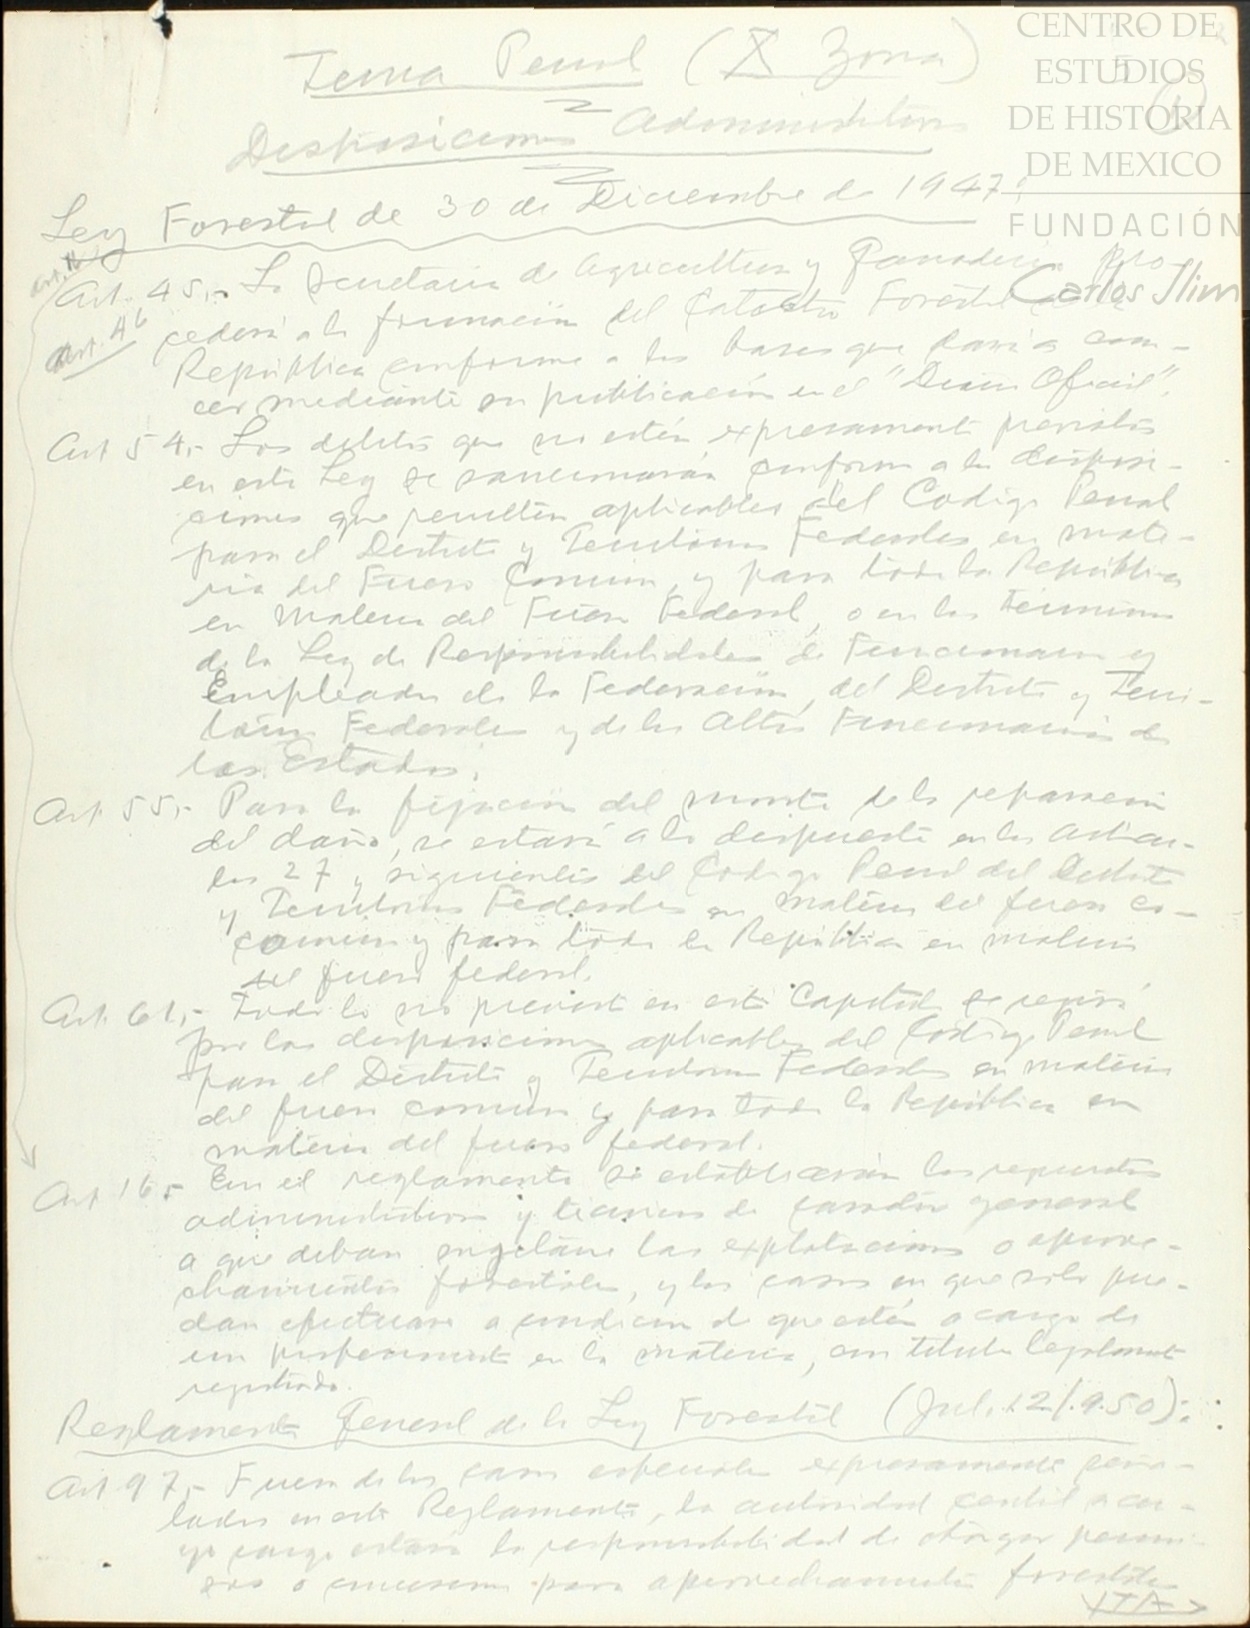 CENTRO DE
ESTUDIOS
DE HISTORIA
DE MEXICO
FUNDACIÓN
Carlos Slim
Tema Penal (X Zona)
1
Disposiciones Administativas
Ley Forestal de 30 de Diciembre de 1947:
Art. 16
Art. 45.- La Secretaria de Agricultura y Ganaderia pro-
Art. 46
cederá a la formación del Catastro Forestal de la
República conforme a las bases que dará a cono-
cer mediante su publicación en el "Diario Oficial".
Art 54.- Los delitos que no estén expresamente previstos
en esta Ley se sancionarán conforme a las disposi-
ciones que resulten aplicables del Codigo Penal
para el Distrito y Territorios Federales en mate-
ria del Fuero Comun, y para toda la República
en Materia del Fuero Federal, o en los términos
de la Ley de Responsabilidades de Funcionarios y
Empleados de la Federación, del Distrito y Terri-
torios Federales y de los Altos Funcionarios de
los Estados.
Art 55.- Para la fijación del monto de la reparación
del daño, se estará a lo dispuesto en los Artícu-
los 27 y siguientes del Codigo Penal del Distrito
y Territorios Federales en materia del fuero co-
comun y para toda la República en materia
del fuero federal.
Art. 61.- Todo lo no previsto en este Capitulo se regirá
por las disposiciones aplicables del Codigo Penal
para el Distrito y Territorios Federales en materia
del fuero comun y para toda la República en
materia del fuero federal.
Art 16.- En el reglamento se establecerán los requisitos
administrativos y tecnicos de caracter general
a que deban sujetarse las explotaciones o aprove-
chamientos forestales, y los casos en que solo pue-
dan efectuarse a condicion de que estén a cargo de
un profesionista en la materia, con titulo legalmente
registrado.
Reglamento General de la Ley Forestal (Jul. 12/950):
Art 97.- Fuera de los casos especiales expresamente seña-
lados en este Reglamento, la autoridad central a cu-
yo cargo estará la responsabilidad de otorgar permi-
sos o concesiones para aprovechamientos forestales